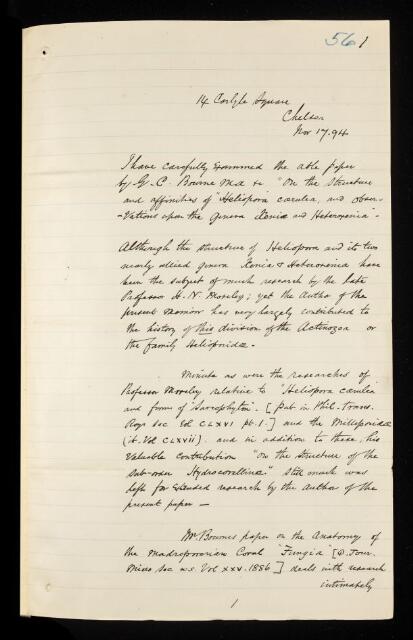 561
14 Carlyle Square
Chelsea
Nov 17. 94
I have carefully examined the able paper
by G. C. Bourne M.A. "On the Structure
and affinities of "Heliopora cærulea, and obser-
-vations upon the genera Xenia and Heteroxenia".
Although the structure of Heliopora and its two
nearly allied genera Xenia & Heteroxenia have
been the subject of much research by the late
Professor H. N. Moseley; yet the author of the
present memoir has very largely contributed to
the history of this division of the Actinozoa or
the family Helioporidæ.
Minute as were the researches of
Professor Moseley relative to "Heliopora cærulea
and form of "Sarcophyton". [Pub in Phil. Trans.
Roy. Soc Vol CLXVI pt. 1.] and the Milleporidæ
(it. Vol CLXVII). and in addition to these, his
valuable contribution "on the structure of the
sub-order Hydrocorallinæ." still much was
left for extended research by the author of the
present paper —
Mr. Bournes paper on the Anatomy of
the Madreporarian Coral "Fungia" [Q. Jour.
Micro Soc n.s. Vol XXV. 1886] deals with research
intimately
1